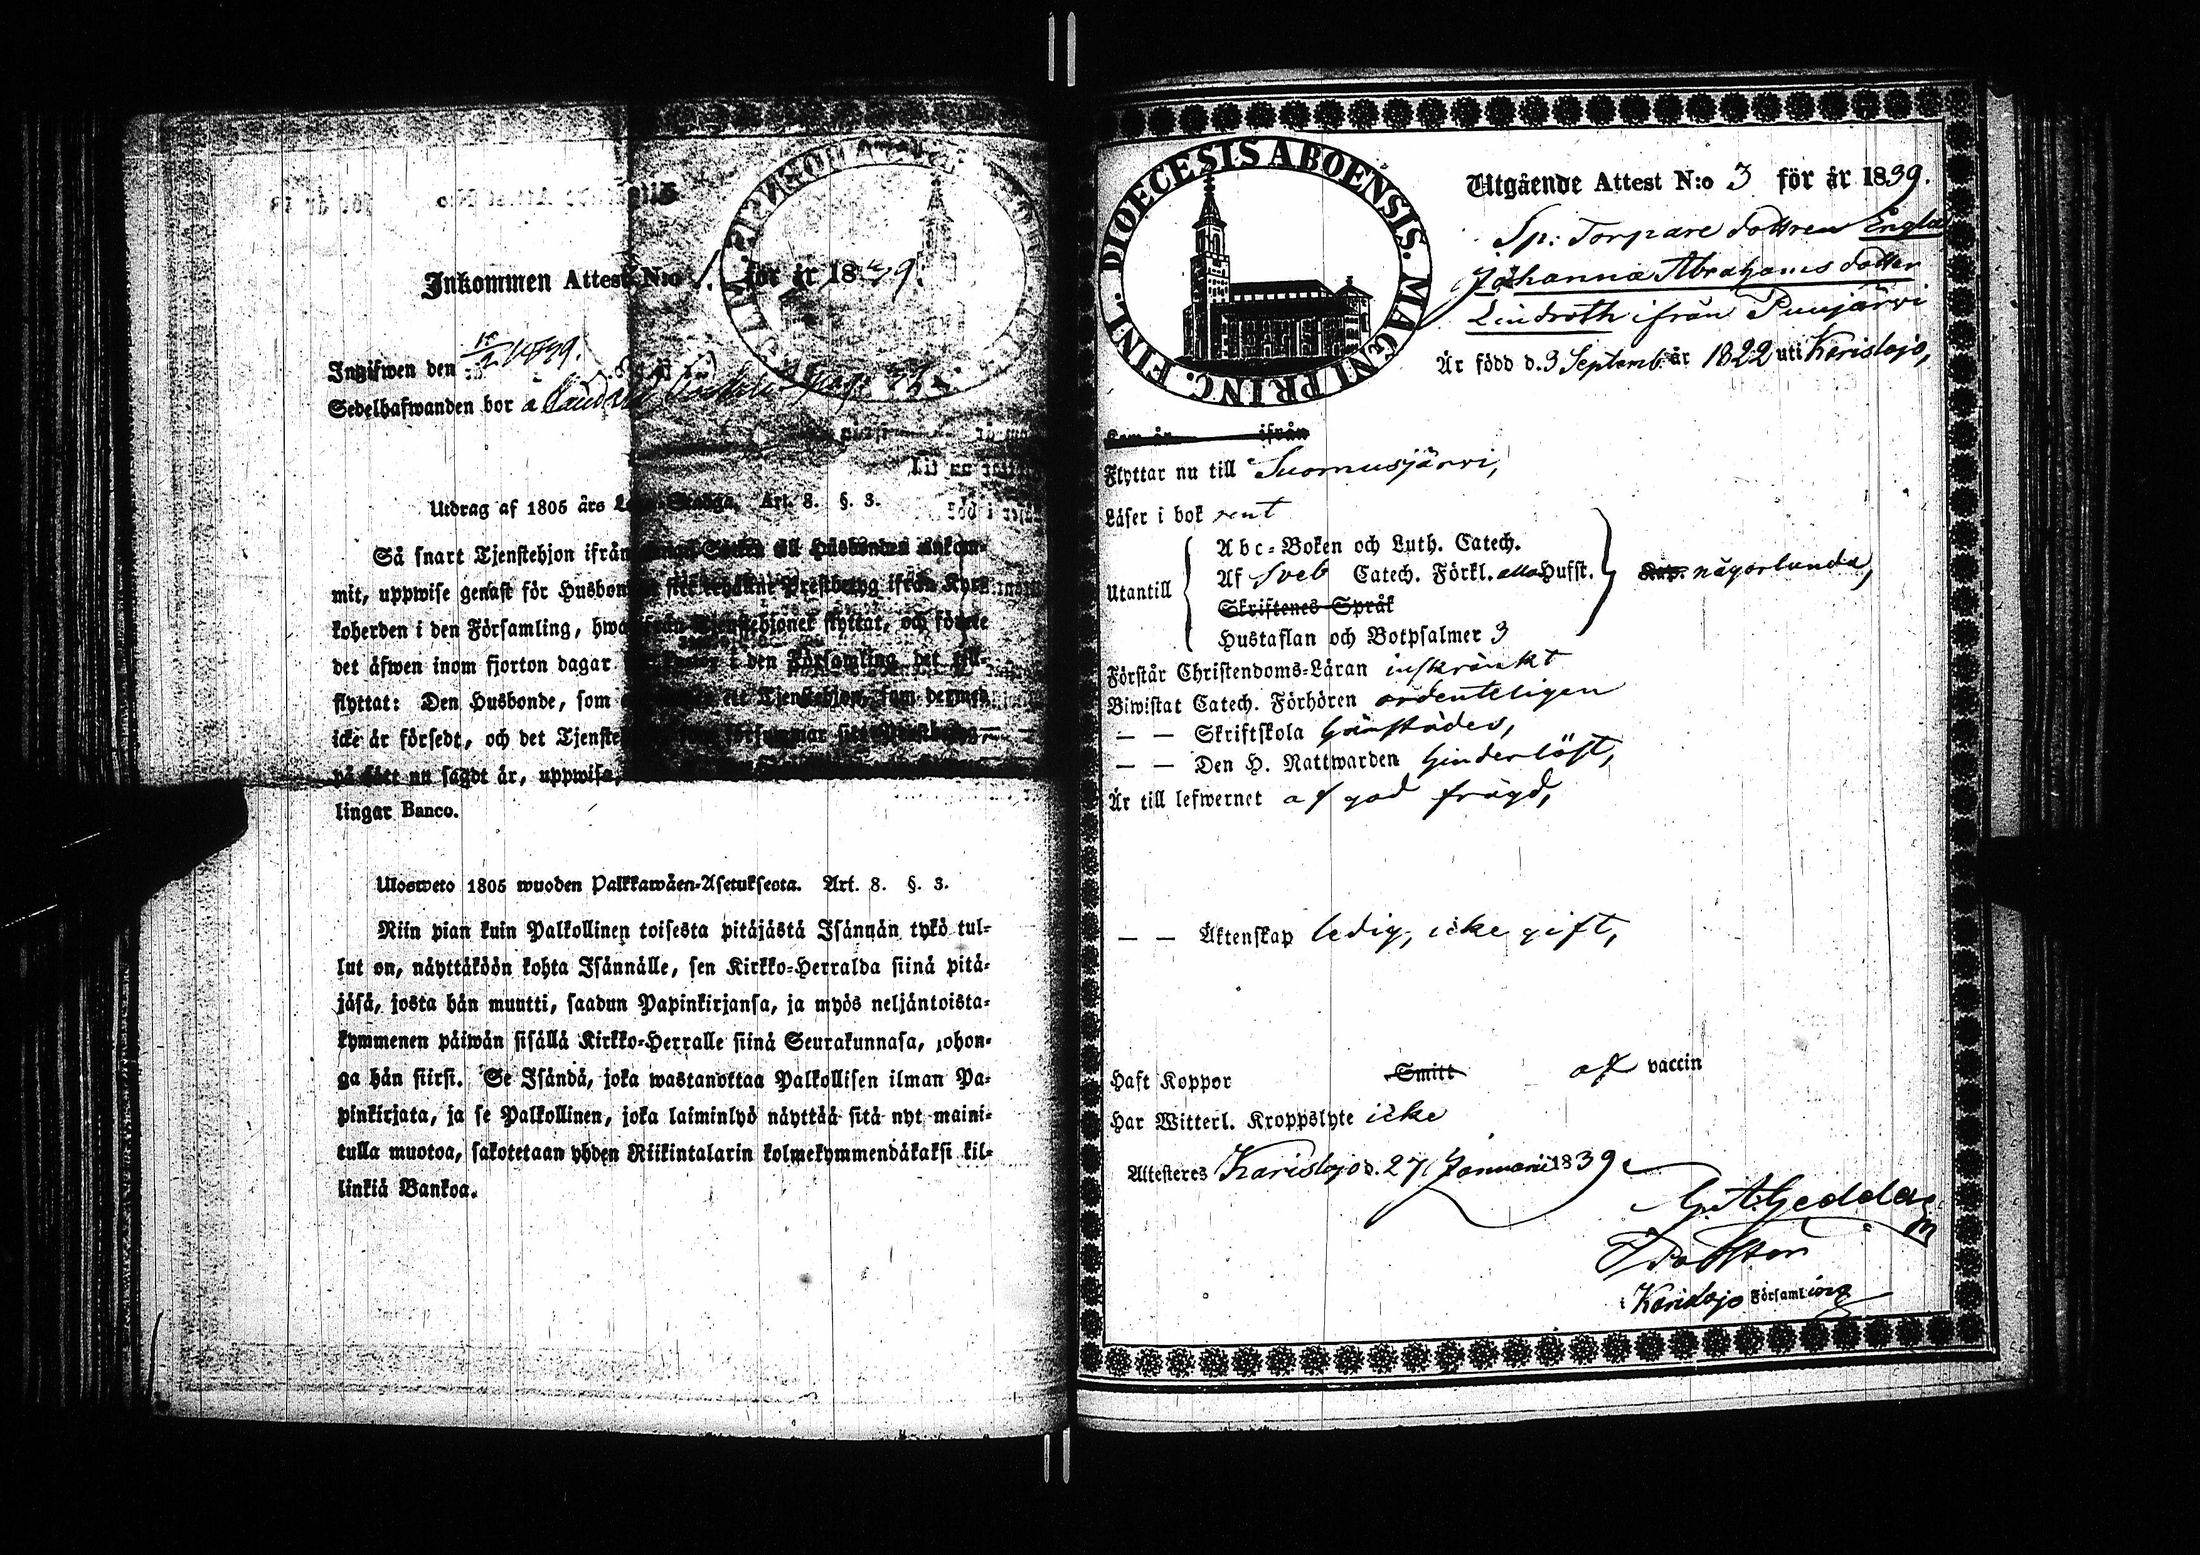 Inkommen Attest N:o 1. för år 1839.
Ingifwen den 15/2 1839.
Sedelhafwanden bor a
Utdrag af 1805 års Stadga. Art. 8. §. 3.
Så snart Tjenstehjon ifrån Socken till Husbonden ankom-
mit, uppwise genast för Husbonden sitt Prestbetyg ifrån Kyrk-
koherden i den Församling, hwarifrån Tjenstehjonet flyttat, och förete
det äfwen inom fjorton dagar i den Församling det till-
flyttat: Den Husbonde, som ett Tjenstehjon, som dermed
icke är försedt, och det Tjenste försummar sitt Prestbetyg,
på sätt nu sagdt är, uppwisa,
lingar Banco.
Ulosweto 1805 wuoden Palkkawäen-Asetuksesta. Art. 8. §. 3.
Niin pian kuin Palkollinen toisesta pitäjästä Isännän tykö tul-
lut on, näyttäköön kohta Isännälle, sen Kirkko-Herralda siinä pitä-
jäsä, josta hän muutti, saadun Papinkirjansa, ja myös neljäntoista-
kymmenen päiwän sisällä Kirkko-Herralle siinä Seurakunnasa, johon-
ga hän siirsi. Se Isändä, joka wastanottaa Palkollisen ilman Pa-
pinkirjata, ja se Palkollinen, joka laiminlyö näyttää sitä nyt maini-
tulla muotoa, sakotetaan yhden Riikintalarin kolmekymmendäkaksi kil-
linkiä Bankoa.
FINL. DIOECESIS ABOENSIS. MAGNI PRINC.
Utgående Attest N:o 3 för år 1839.
Sp: Torpare Dottren Engla
Johanna Abrahams dotter
Lindroth ifrån Puujärvi
Är född d. 3 Septemb. år 1822 uti Karislojo,
Kom år ifrån
Flyttar nu till Suomusjärvi,
Läser i bok rent
Utantill
Abc-Boken och Luth. Catech.
Af Sveb Catech. Förkl. alla Hufst.
Skriftenes Språk
Hustaflan och Botpsalmer 3
någorlunda,
Förstår Christendoms-Läran inskränkt
Biwistat Catech. Förhören ordenteligen
— — Skriftskola härstädes,
— — Den H. Nattwarden hinderlöst,
Är till lefwernet af god frägd,
— — Äktenskap ledig, icke gift,
Haft Koppor Smitt af vaccin
Har Witterl. Kroppslyte icke
Attesteres Karislojo d. 27 Januarii 1839.
G. A. Gedda
Pastor
i Karislojo Församling